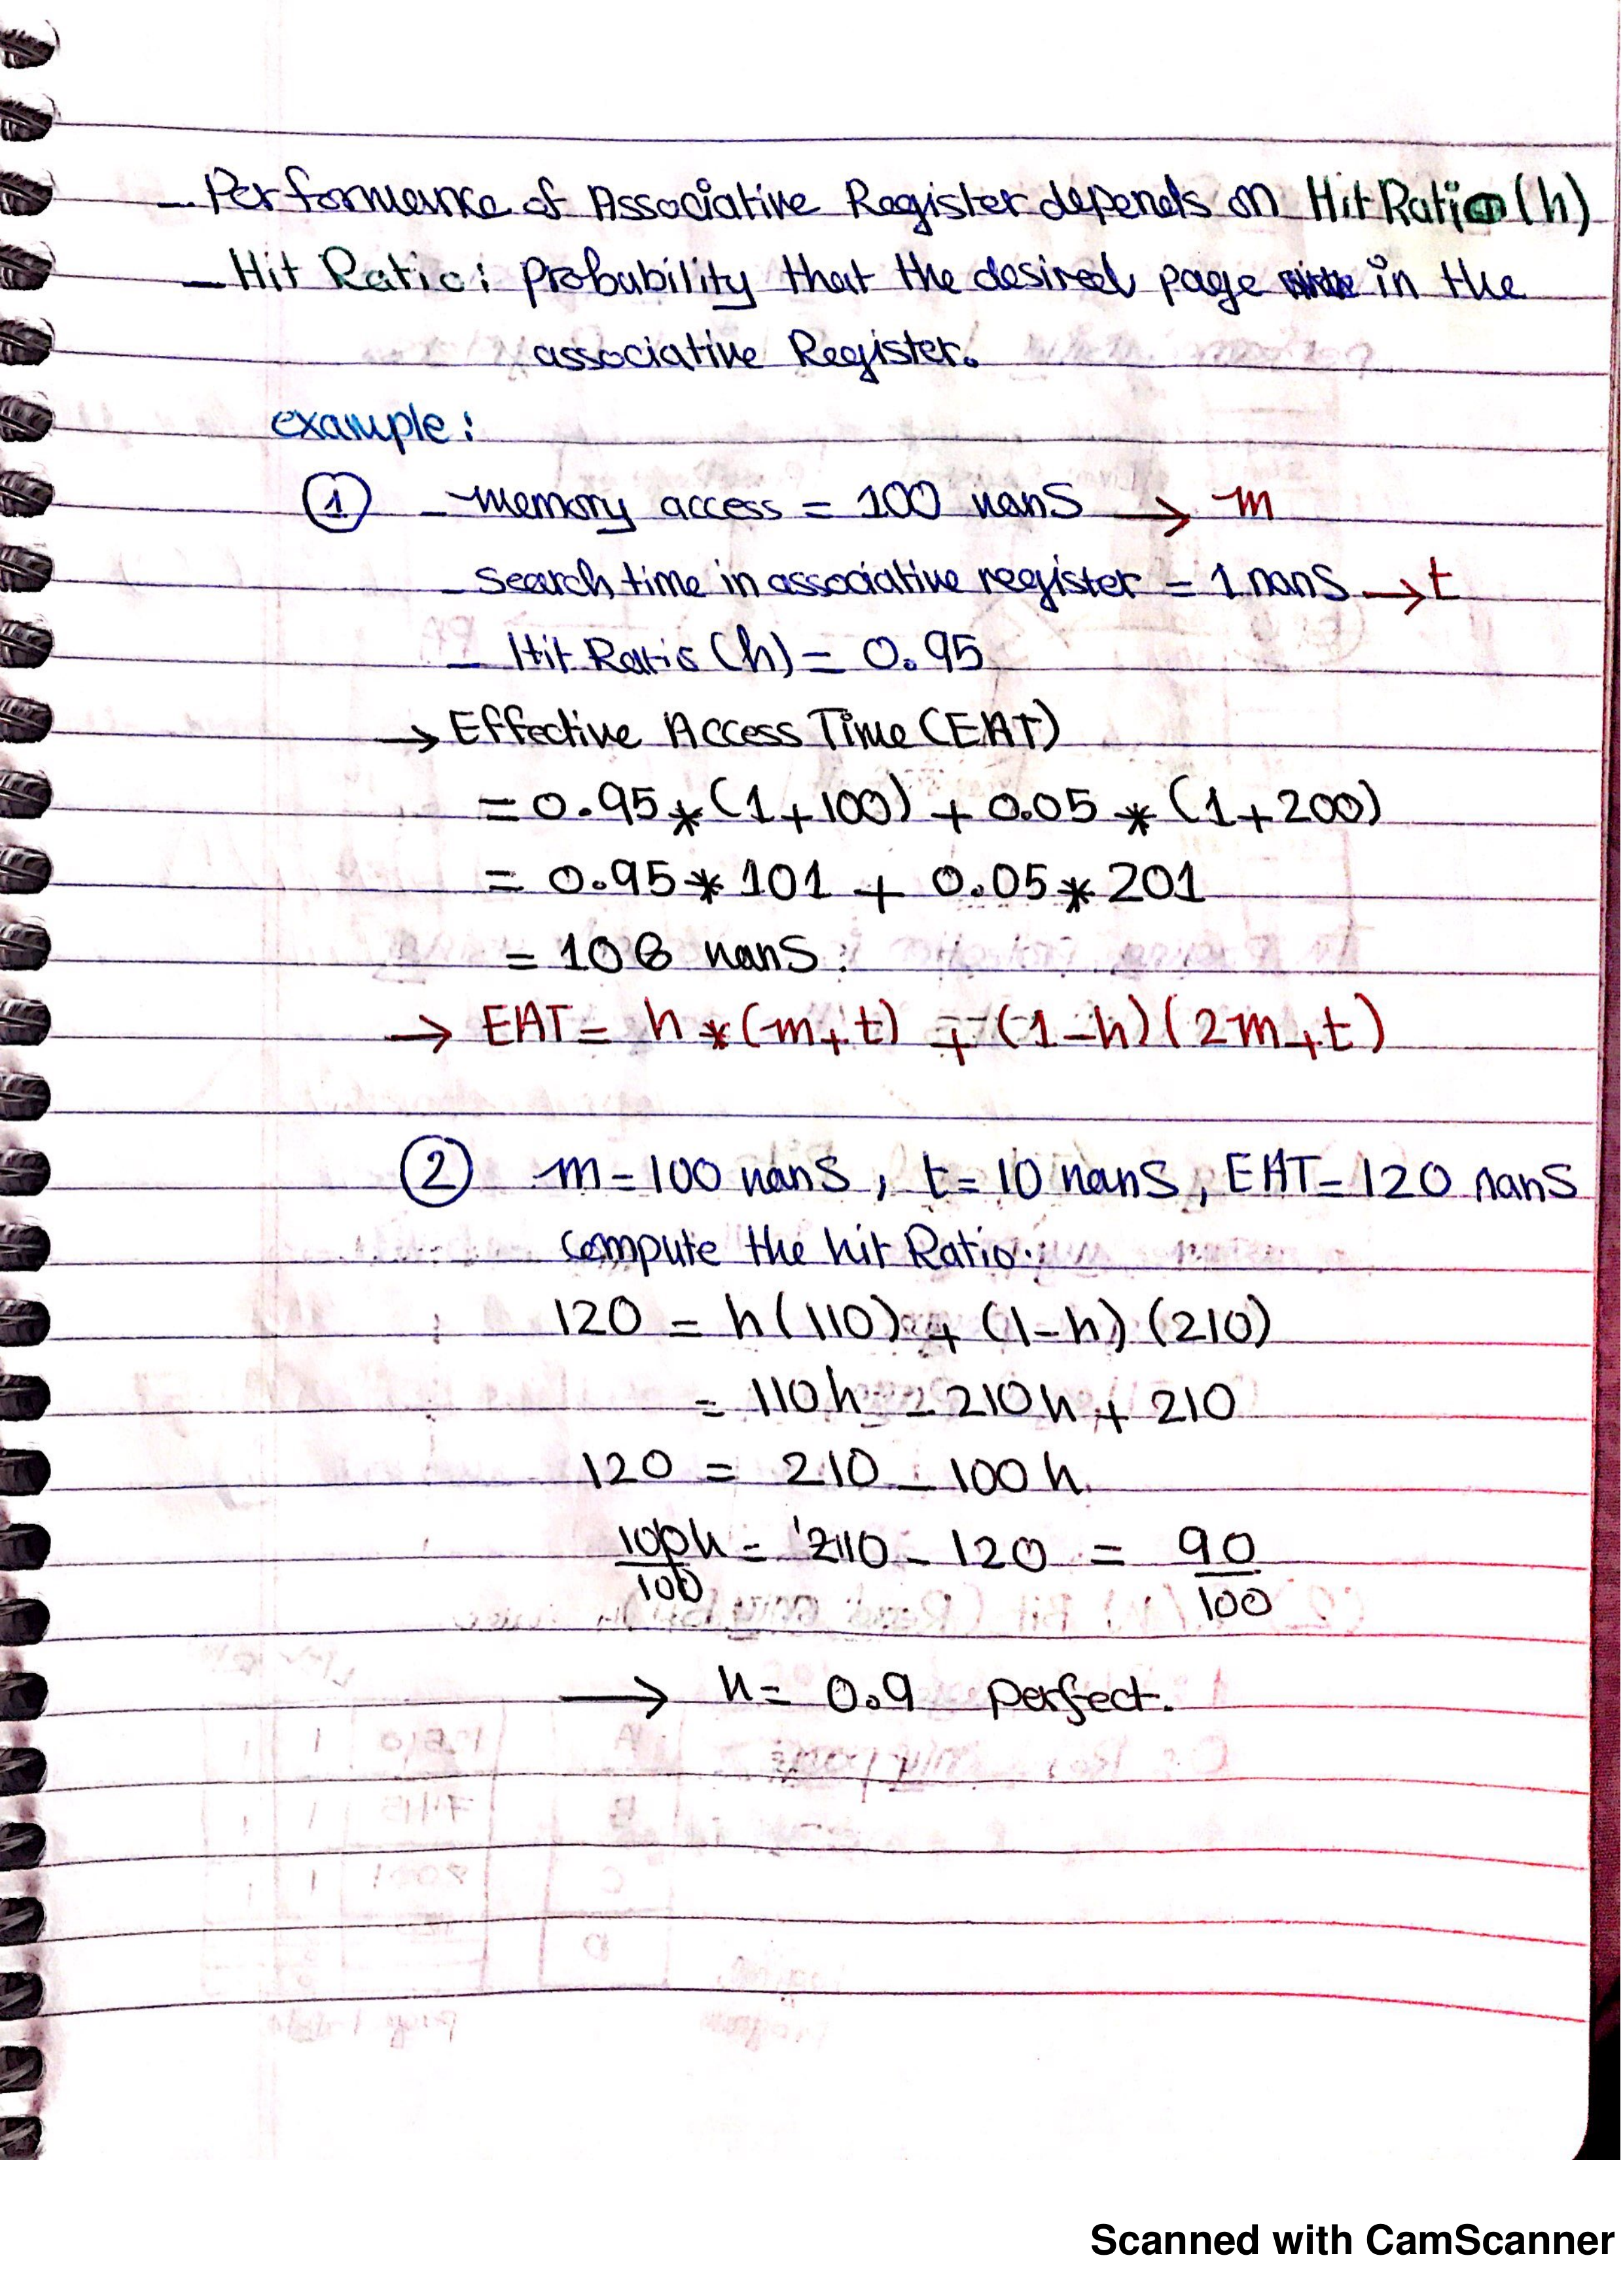 - Performance of Associative Register depends on Hit Ratio (h)
- Hit Ratio: probability that the desired page in the
associative Register.
example:
① - memory access = 100 nanS → m
- Search time in associative register = 1 nanS → t
- Hit Ratio (h) = 0.95
→ Effective Access Time (EAT)
= 0.95 * (1+100) + 0.05 * (1+200)
= 0.95 * 101 + 0.05 * 201
= 106 nanS.
→ EAT = h * (m+t) + (1-h) (2m+t)
② m = 100 nanS, t = 10 nanS, EAT = 120 nanS
compute the hit Ratio.
120 = h(110) + (1-h) (210)
= 110h - 210h + 210
120 = 210 - 100h
100h/100 = 210 - 120 = 90/100
→ h = 0.9 perfect.
Scanned with CamScanner